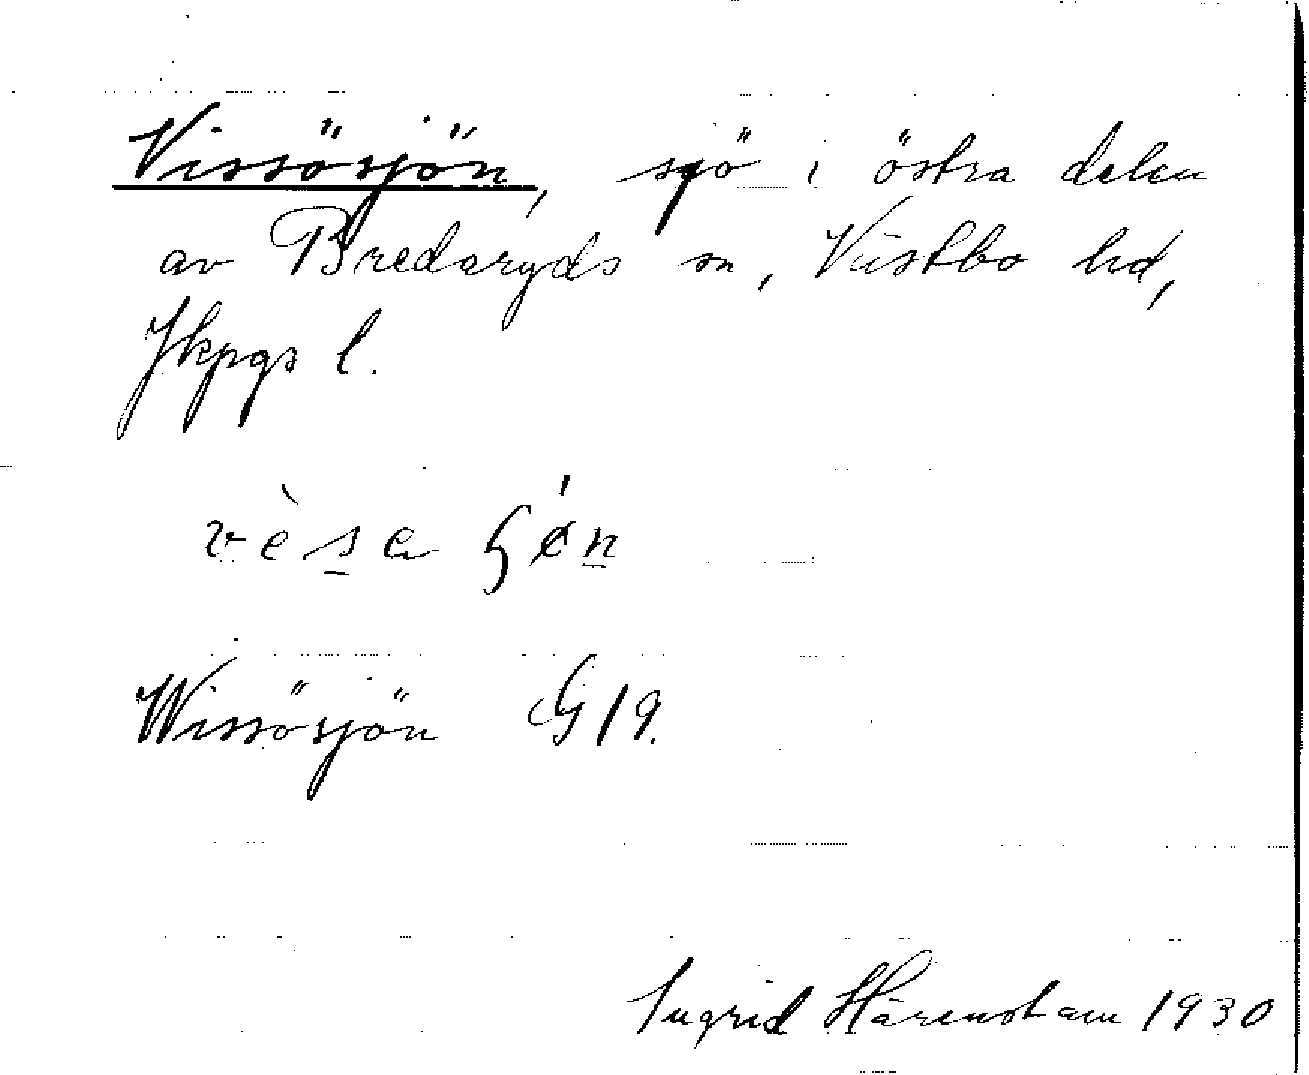 Vissösjön, sjö i östra delen
av Bredaryds sn, Västbo hd,
Jkpgs l.
Wissösjön G19.
Ingrid Härenstam 1930